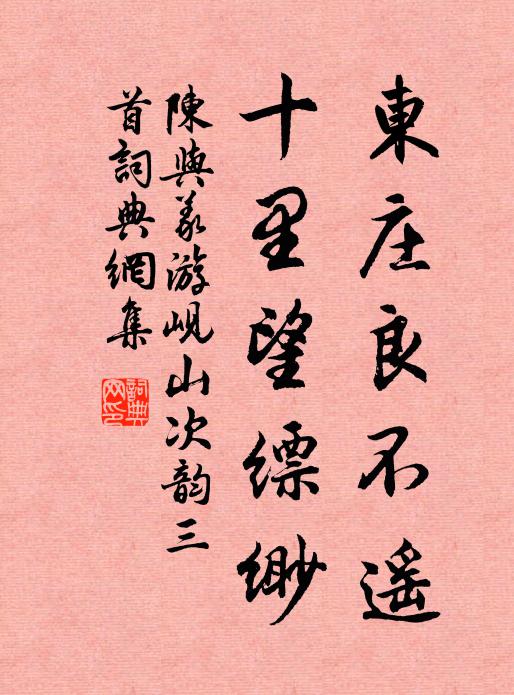 東庄良不遥
十里望缥缈
陳與義游峴山次韵三
首詞典網集
詞典
网印